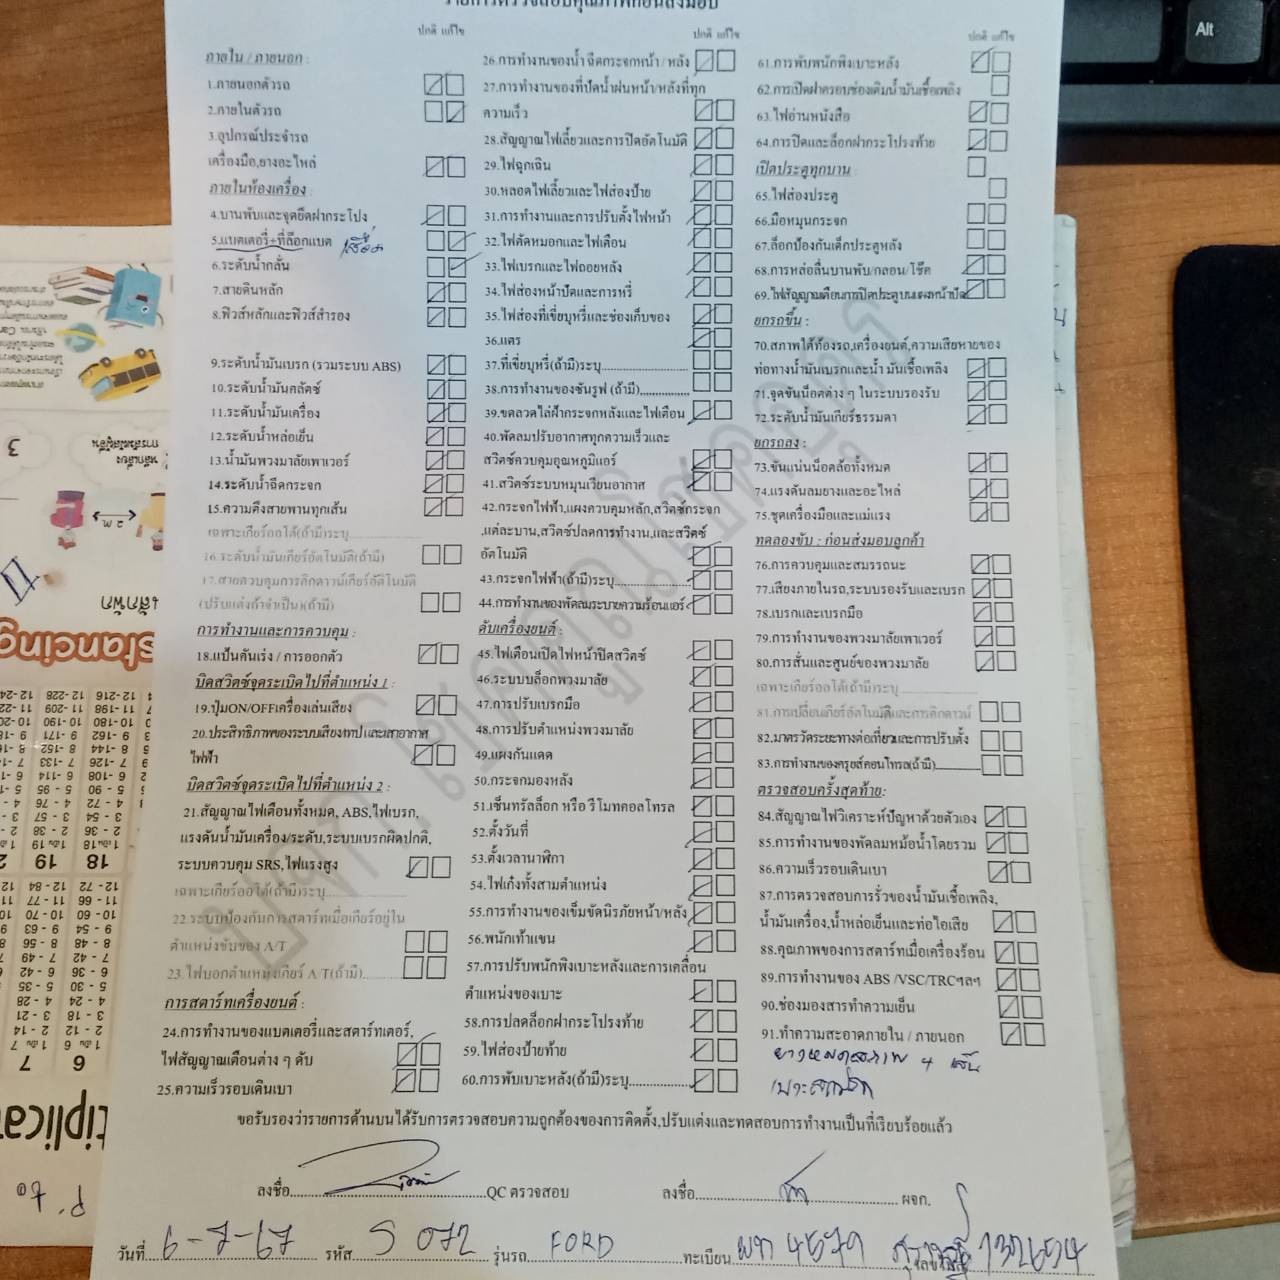 รายการตรวจสอบคุณภาพก่อนส่งมอบ
ปกติ แก้ไข
ภายใน / ภายนอก :
1.ภายนอกตัวรถ
2.ภายในตัวรถ
3.อุปกรณ์ประจำรถ
เครื่องมือ,ยางอะไหล่
ภายในห้องเครื่อง :
4.บานพับและจุดยึดฝากระโปง
5.แบตเตอรี่+ที่ล็อกแบต
6.ระดับน้ำกลั่น
7.สายดินหลัก
8.ฟิวส์หลักและฟิวส์สำรอง
9.ระดับน้ำมันเบรก (รวมระบบ ABS)
10.ระดับน้ำมันคลัตช์
11.ระดับน้ำมันเครื่อง
12.ระดับน้ำหล่อเย็น
13.น้ำมันพวงมาลัยเพาเวอร์
14.ระดับน้ำฉีดกระจก
15.ความตึงสายพานทุกเส้น
เฉพาะเกียร์ออโต้(ถ้ามี)ระบุ
16.ระดับน้ำมันเกียร์อัตโนมัติ(ถ้ามี)
17.สายควบคุมการคิกดาวน์เกียร์อัติโนมัติ
(ปรับแต่งถ้าจำเป็น)(ถ้ามี)
การทำงานและการควบคุม :
18.แป้นคันเร่ง / การออกตัว
บิดสวิตซ์จุดระเบิดไปที่ตำแหน่ง 1 :
19.ปุ่มON/OFFเครื่องเล่นเสียง
20.ประสิทธิภาพของระบบเสียง/เทป และเสาอากาศ
ไฟฟ้า
บิดสวิตซ์จุดระเบิดไปที่ตำแหน่ง 2 :
21.สัญญาณไฟเตือนทั้งหมด, ABS,ไฟเบรก,
แรงดันน้ำมันเครื่อง/ระดับ,ระบบเบรกผิดปกติ,
ระบบควบคุม SRS,ไฟแรงสูง
เฉพาะเกียร์ออโต้(ถ้ามี)ระบุ
22.ระบบป้องกันการสตาร์ทเมื่อเกียร์อยู่ใน
ตำแหน่งขับของ A/T
23.ไฟบอกตำแหน่งเกียร์ A/T(ถ้ามี)
การสตาร์ทเครื่องยนต์ :
24.การทำงานของแบตเตอรี่และสตาร์ทเตอร์,
ไฟสัญญาณเตือนต่าง ๆ ดับ
25.ความเร็วรอบเดินเบา
ปกติ แก้ไข
26.การทำงานของน้ำ ฉีดกระจกหน้า / หลัง
27.การทำงานของที่ปัดน้ำฝนหน้า/หลังที่ทุก
ความเร็ว
28.สัญญาณไฟเลี้ยวและการปิดอัตโนมัติ
29.ไฟฉุกเฉิน
30.หลอดไฟเลี้ยวและไฟส่องป้าย
31.การทำงานและการปรับตั้งไฟหน้า
32.ไฟตัดหมอกและไฟเตือน
33.ไฟเบรกและไฟถอยหลัง
34.ไฟส่องหน้าปัดและการหรี่
35.ไฟส่องที่เขี่ยบุหรี่และช่องเก็บของ
36.แตร
37.ที่เขี่ยบุหรี่(ถ้ามี)ระบุ
38.การทำงานของซันรูฟ (ถ้ามี)
39.ขดลวดไล่ฝ้ากระจกหลังและไฟเตือน
40.พัดลมปรับอากาศทุกความเร็วและ
สวิตซ์ควบคุมอุณหภูมิแอร์
41.สวิตซ์ระบบหมุนเวียนอากาศ
42.กระจกไฟฟ้า,แผงควบคุมหลัก,สวิตซ์กระจก
,แต่ละบาน,สวิตซ์ปลดการทำงาน,และสวิตซ์
อัตโนมัติ
43.กระจกไฟฟ้า(ถ้ามี)ระบุ
44.การทำงานของพัดลมระบายความร้อนแอร์
ดับเครื่องยนต์ :
45.ไฟเตือนเปิดไฟหน้าปิดสวิตซ์
46.ระบบบล็อกพวงมาลัย
47.การปรับเบรกมือ
48.การปรับตำแหน่งพวงมาลัย
49.แผงกันแดด
50.กระจกมองหลัง
51.เซ็นทรัลล็อก หรือ รีโมทคอลโทรล
52.ตั้งวันที่
53.ตั้งเวลานาฬิกา
54.ไฟเก๋งทั้งสามตำแหน่ง
55.การทำงานของเข็มขัดนิรภัยหน้า/หลัง
56.พนักเท้าแขน
57.การปรับพนักพิงเบาะหลังและการเคลื่อน
ตำแหน่งของเบาะ
58.การปลดล็อกฝากระโปรงท้าย
59.ไฟส่องป้ายท้าย
60.การพับเบาะหลัง(ถ้ามี)ระบุ
ปกติ แก้ไข
61.การพับพนักพิงเบาะหลัง
62.การเปิดฝาครอบช่องเติมน้ำมันเชื้อเพลิง
63.ไฟอ่านหนังสือ
64.การปิดและล็อกฝากระโปรงท้าย
เปิดประตูทุกบาน :
65.ไฟส่องประตู
66.มือหมุนกระจก
67.ล็อกป้องกันเด็กประตูหลัง
68.การหล่อลื่นบานพับ/กลอน/โช๊ค
69.ไฟสัญญาณเตือนการปิดประตูบนแผงหน้าปัด
ยกรถขึ้น :
70.สภาพใต้ท้องรถ,เครื่องยนต์,ความเสียหายของ
ท่อทางน้ำมันเบรกและน้ำ มันเชื้อเพลิง
71.จุดขันน็อตต่าง ๆ ในระบบรองรับ
72.ระดับน้ำมันเกียร์ธรรมดา
ยกรถลง :
73.ขันแน่นน็อตล้อทั้งหมด
74.แรงดันลมยางและอะไหล่
75.ชุดเครื่องมือและแม่แรง
ทดลองขับ : ก่อนส่งมอบลูกค้า
76.การควบคุมและสมรรถนะ
77.เสียงภายในรถ,ระบบรองรับและเบรก
78.เบรกและเบรกมือ
79.การทำงานของพวงมาลัยเพาเวอร์
80.การสั่นและศูนย์ของพวงมาลัย
เฉพาะเกียร์ออโต้(ถ้ามี)ระบุ
81.การเปลี่ยนเกียร์อัตโนมัติและการคิกดาวน์
82.มาตรวัดระยะทางต่อเที่ยวและการปรับตั้ง
83.การทำงานของครุยส์คอนโทรล(ถ้ามี)
ตรวจสอบครั้งสุดท้าย:
84.สัญญาณไฟวิเคราะห์ปัญหาด้วยตัวเอง
85.การทำงานของพัดลมหม้อน้ำโดยรวม
86.ความเร็วรอบเดินเบา
87.การตรวจสอบการรั่วของน้ำมันเชื้อเพลิง,
น้ำมันเครื่อง,น้ำหล่อเย็นและท่อไอเสีย
88.คุณภาพของการสตาร์ทเมื่อเครื่องร้อน
89.การทำงานของ ABS /VSC/TRCฯลฯ
90.ช่องมองสารทำความเย็น
91.ทำความสะอาดภายใน / ภายนอก
ยางหมดสภาพ 4 เส้น
ขอรับรองว่ารายการด้านบนได้รับการตรวจสอบความถูกต้องของการติดตั้ง,ปรับแต่งและทดสอบการทำงานเป็นที่เรียบร้อยแล้ว
ลงชื่อ QC ตรวจสอบ ลงชื่อ ผจก.
วันที่ 6-7-67 รหัส S 072 รุ่นรถ FORD ทะเบียน 4579
Alt